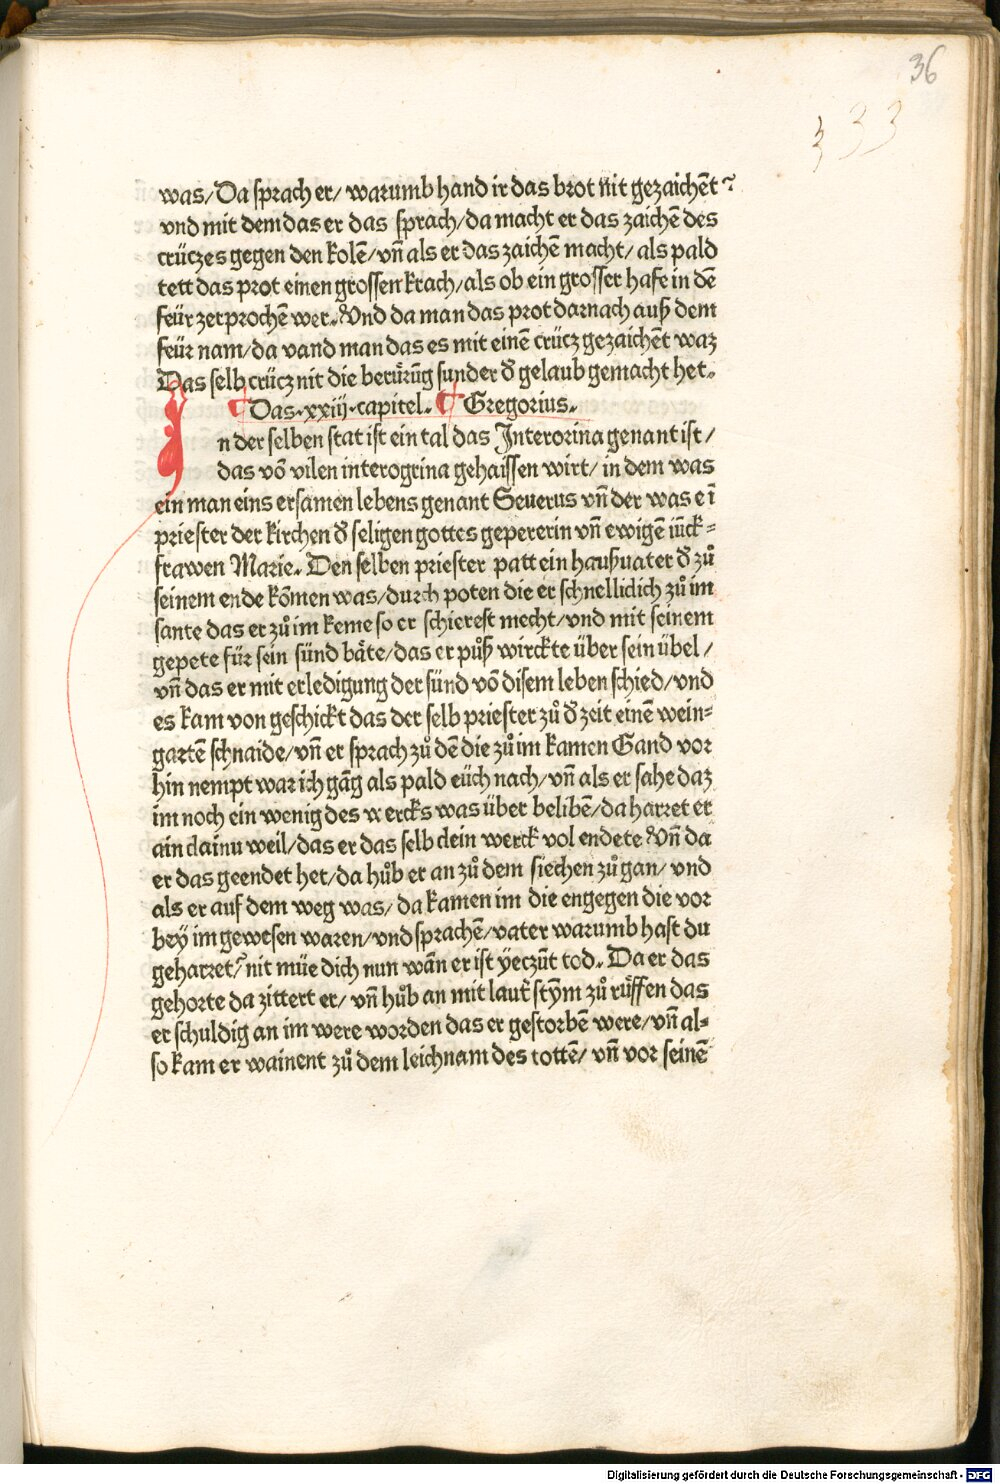 36
333
was/ Da sprach er/ warumb hand ir das brot nit gezaichēt?
vnd mit dem das er das sprach/ da macht er das zaichē des
crüczes gegen den kolē/ vn̄ als er das zaichē macht/ als pald
tett das prot einen grossen krach/ als ob ein grosser hafe in dē
feür zerprochē wer. Vnd da man das prot darnach auß dem
feür nam/ da vand man das es mit einē crücz gezaichēt waz
Das selb crücz nit die berürūg sunder d̕ gelaub gemacht het.
Das .xxiij. capitel. Gregorius.
In der selben stat ist ein tal das Interorina genant ist/
das vō vilen interogrina gehaissen wirt/ in dem was
ein man eins ersamen lebens genant Seuerus vn̄ der was eī
priester der kirchen d̕ seligen gottes gepererin vn̄ ewigē iūck=
frawen Marie. Den selben priester patt ein haußuater d̕ zů
seinem ende kōmen was/ durch poten die er schnellidich zů im
sante das er zů im keme so er schierest mecht/ vnd mit seinem
gepete für sein sünd bäte/ das er půß wirckte über sein übel/
vn̄ das er mit erledigung der sünd vō disem leben schied/ vnd
es kam von geschickt das der selb priester zů d̕ zeit einē wein=
gartē schnaide/ vn̄ er sprach zů dē die zů im kamen Gand vor
hin nempt war ich gāg als pald eüch nach/ vn̄ als er sahe daz
im noch ein wenig des wercks was über belibē/ da harret er
ain clainu weil/ das er das selb clein werck vol endete Vn̄ da
er das geendet het/ da hůb er an zů dem siechen zů gan/ vnd
als er auf dem weg was/ da kamen im die engegen die vor
beÿ im gewesen waren/ vnd sprachē/ vater warumb hast du
geharret? nit müe dich nun wān er ist ÿeczūt tod. Da er das
gehorte da zittert er/ vn̄ hůb an mit laut̕ stȳm zů rüffen das
er schuldig an im were worden das er gestorbē were/ vn̄ al=
so kam er wainent zů dem leichnam des tottē/ vn̄ vor seinē
Digitalisierung gefördert durch die Deutsche Forschungsgemeinschaft - DFG